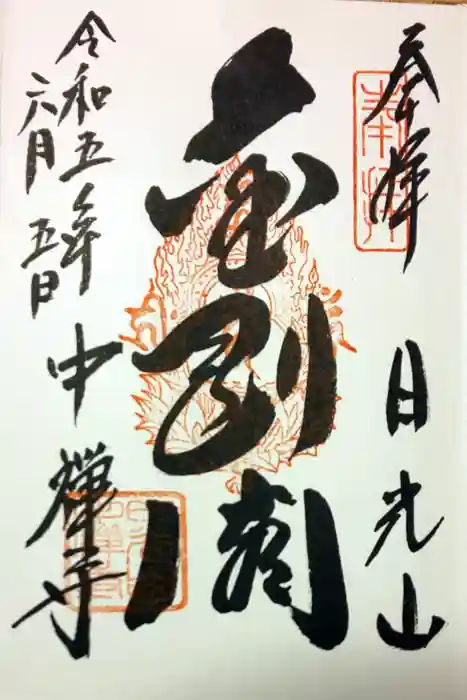 奉拝
日光山
金剛閣
令和五年
六月五日
中禅寺